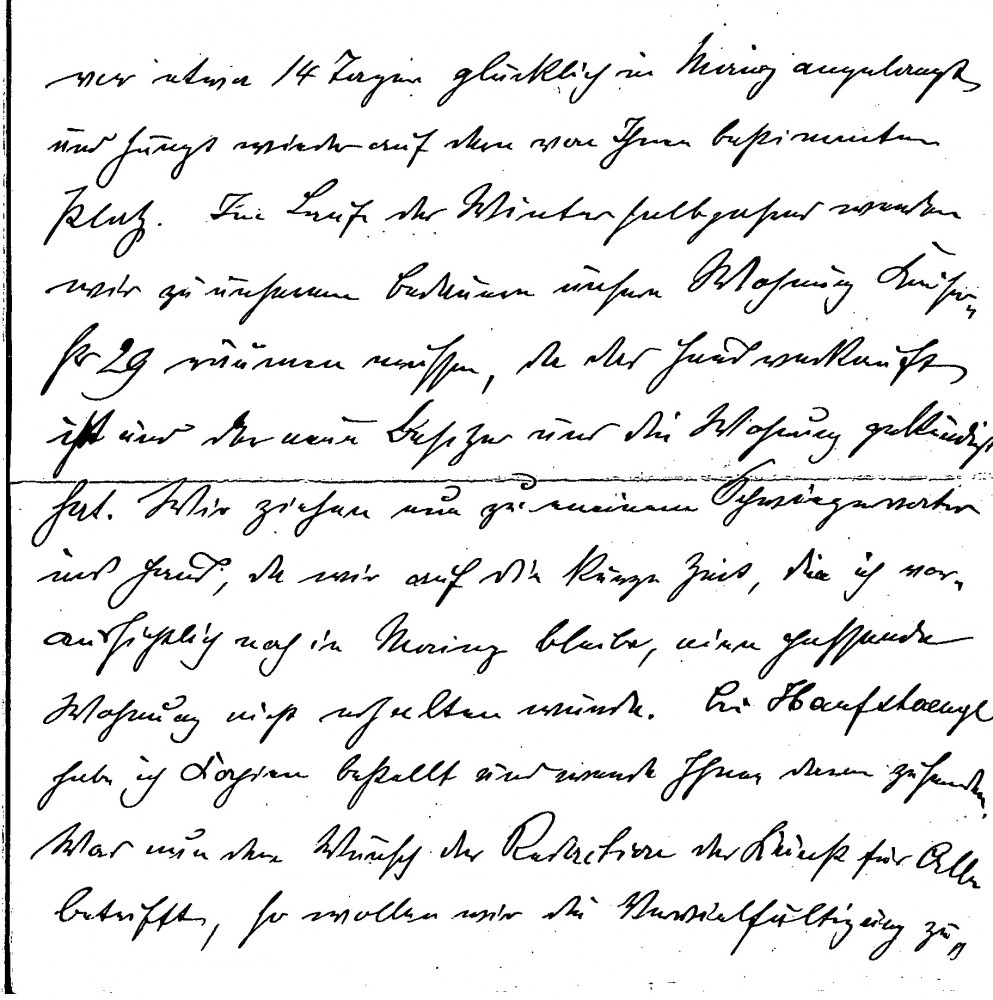 vor etwa 14 Tagen glücklich in Mainz angelangt
und hängt wieder auf dem von Ihnen bestimmten
Platz. Im Laufe des Winterhalbjahres werden
wir zu unserem Bedauern unsere Wohnung Kaiser-
str 29 räumen müssen, da das Haus verkauft
ist und der neue Besitzer uns die Wohnung gekündigt
hat. Wir ziehen nun zu meinem Schwiegervater
ins Haus, da wir auf die kurze Zeit, die ich vor-
aussichtlich noch in Mainz bleibe, eine passende
Wohnung nicht erhalten würde. Bei Hanfstaengl
habe ich Kopien bestellt und werde Ihnen davon zusenden.
Was nun den Wunsch der Redaction der Kunst für Alle
betrifft, so wollen wir die Vervielfältigung zu-